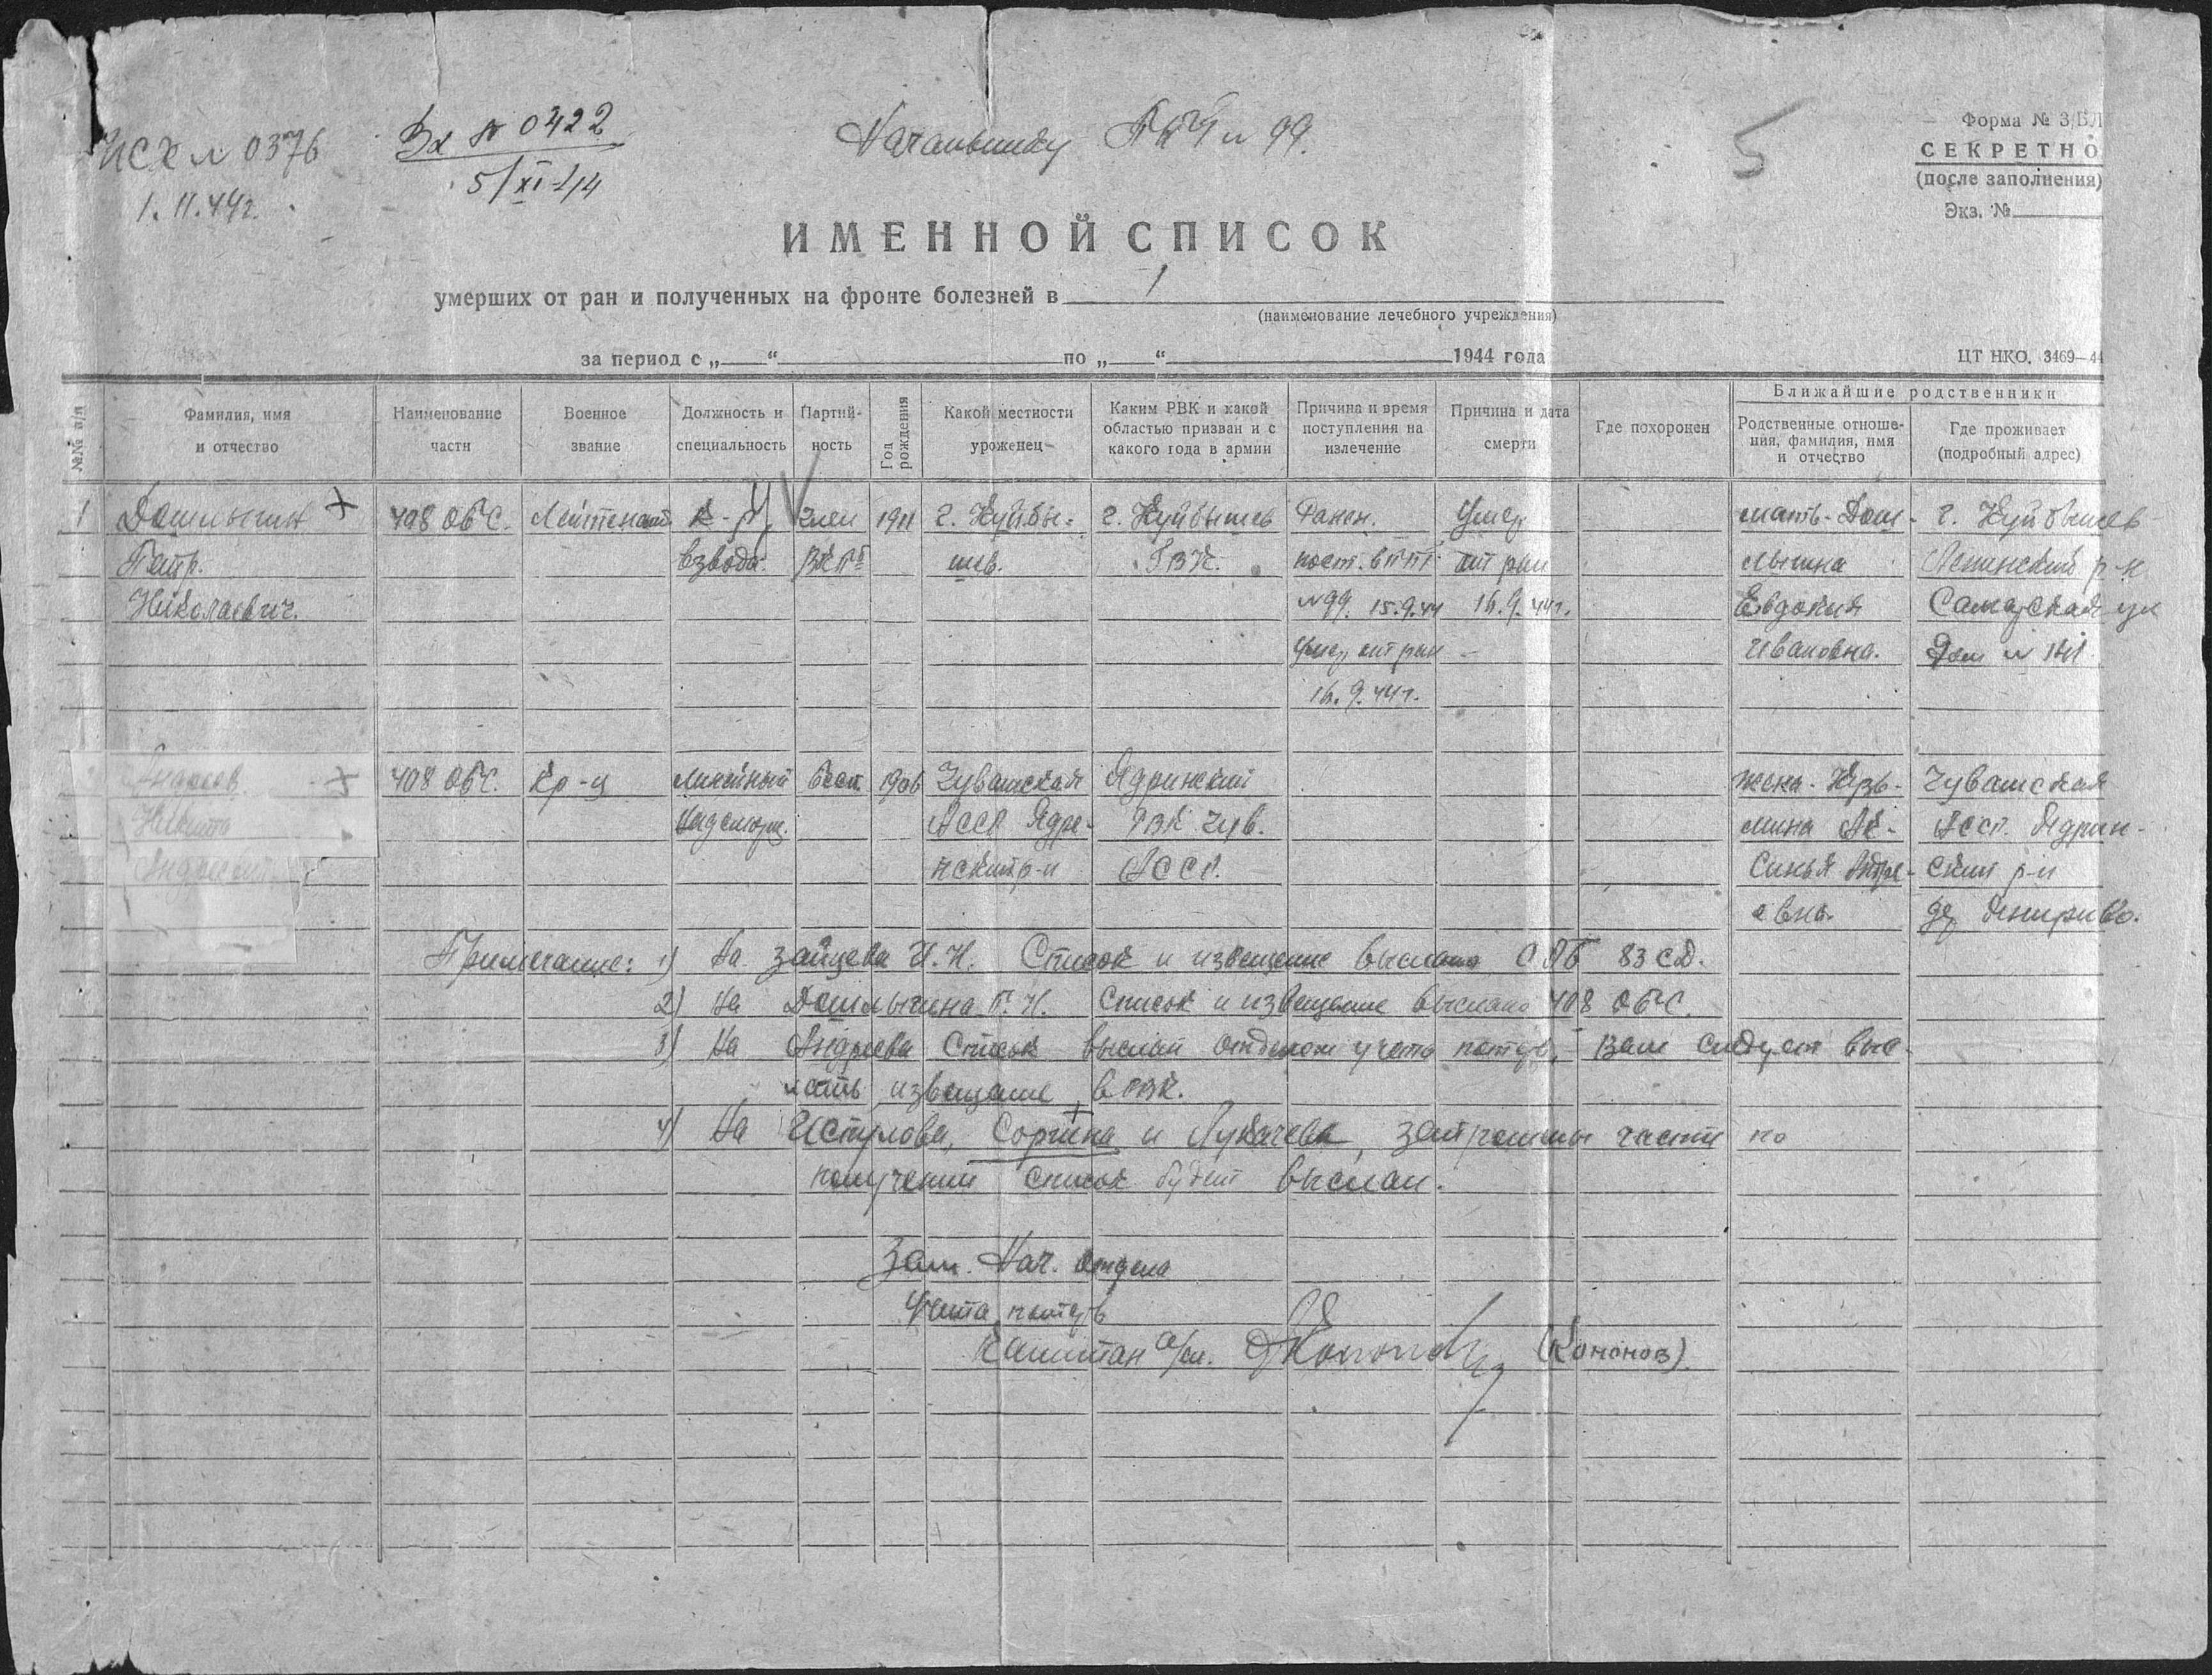 Исх № 0376
1.11.44г.
Вх № 0422
5/XI-44
Начальнику ППГ № 99.
5
Форма № 3/БЛ
СЕКРЕТНО
(после заполнения)
Экз. №
ИМЕННОЙ СПИСОК
умерших от ран и полученных на фронте болезней в
(наименование лечебного учреждения)
за период с „ “ по „ “ 1944 года
ЦТ НКО. 3469—44
№№ п/п
Фамилия, имя и отчество
Наименование части
Военное звание
Должность и специальность
Партийность
Год рождения
Какой местности уроженец
Каким РВК и какой областью призван и с какого года в армии
Причина и время поступления на излечение
Причина и дата смерти
Где похоронен
Ближайшие родственники
Родственные отношения, фамилия, имя и отчество
Где проживает (подробный адрес)
1 Дошлыгин 408 ОБС. Лейтенант к-р член 1911 г. Куйбы- г. Куйбышев Ранен. Умер мать-Дош- г. Куйбышев
Петр. взвода. ВКПб шев. ГВК. пост. в ППГ от ран лыгина Ленинский р-н
Николаевич. №99. 15.9.44 16.9.44г. Евдокия Самарская ул
Умер от ран Ивановна. Дом №
16.9.44г.
Андреев 408 ОБС. Кр-ц Линейный бесп. 1906 Чувашская Ядринский жена-Кузь- Чувашская
Никита надсмотр. АССР Ядри- РВК Чув. мина Ак- АССР. Ядрин-
Андреевич нский р-н АССР. синья Андре- ский р-н
евна. дер.
Примечание: 1) На Зайцева И.Н. Список и извещение выслано 83 СД.
2) На Дошлыгина П.Н. Список и извещение выслано 408 ОБС.
3) На Андреева Список выслан отделом учета потерь, Вам следует выс-
лать извещение в РВК.
4) На Сорина и Лукачева, запрошены части по
получении список будет выслан.
Зам. Нач. отдела
учета потерь
Капитан а/сл. (Кононов).